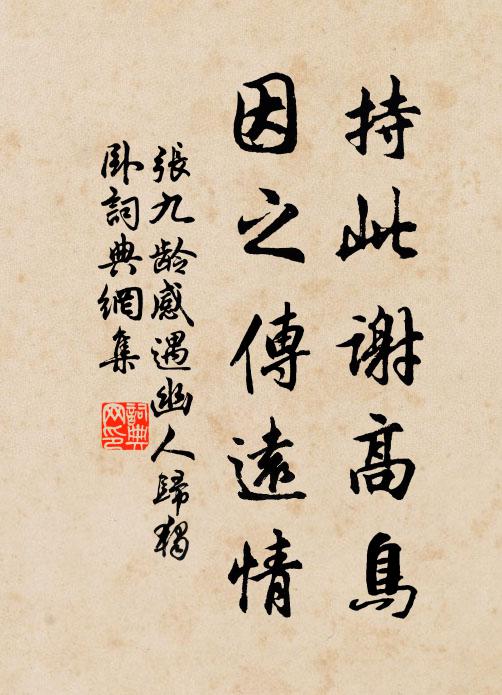 持此謝高鳥
因之傳遠情
張九龄感遇幽人歸獨
卧詞典網集
詞典
网印